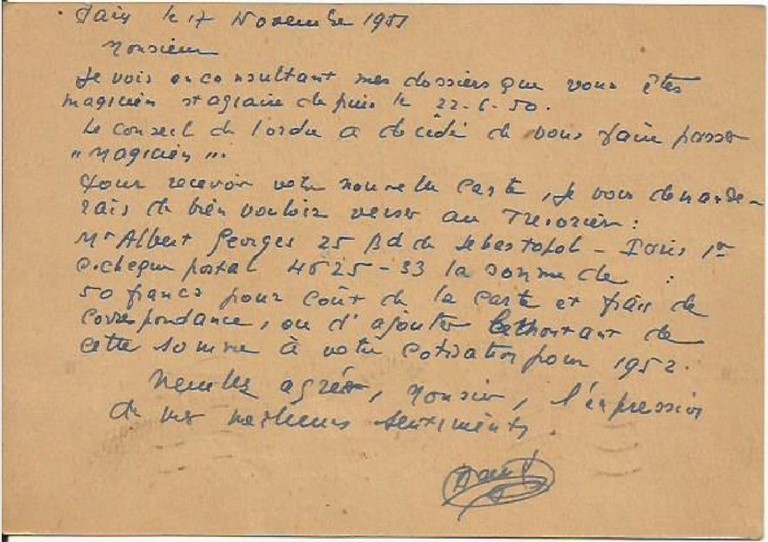 Paris le 17 Novembre 1951
Monsieur
Je vois en consultant mes dossiers que vous êtes
magicien stagiaire depuis le 22-6-50.
Le conseil de l'ordre a décidé de vous faire passer
"Magicien".
Pour recevoir votre nouvelle carte, je vous demande-
rais de bien vouloir verser au Trésorier :
Mr Albert Georges 25 Bd de Sebastopol - Paris 1er
C. cheque postal 4625-33 la somme de :
50 francs pour coût de la carte et frais de
correspondance, ou d'ajouter le montant de
cette somme à votre cotisation pour 1952.
Veuillez agréer, Monsieur, l'expression
de mes meilleurs sentiments.